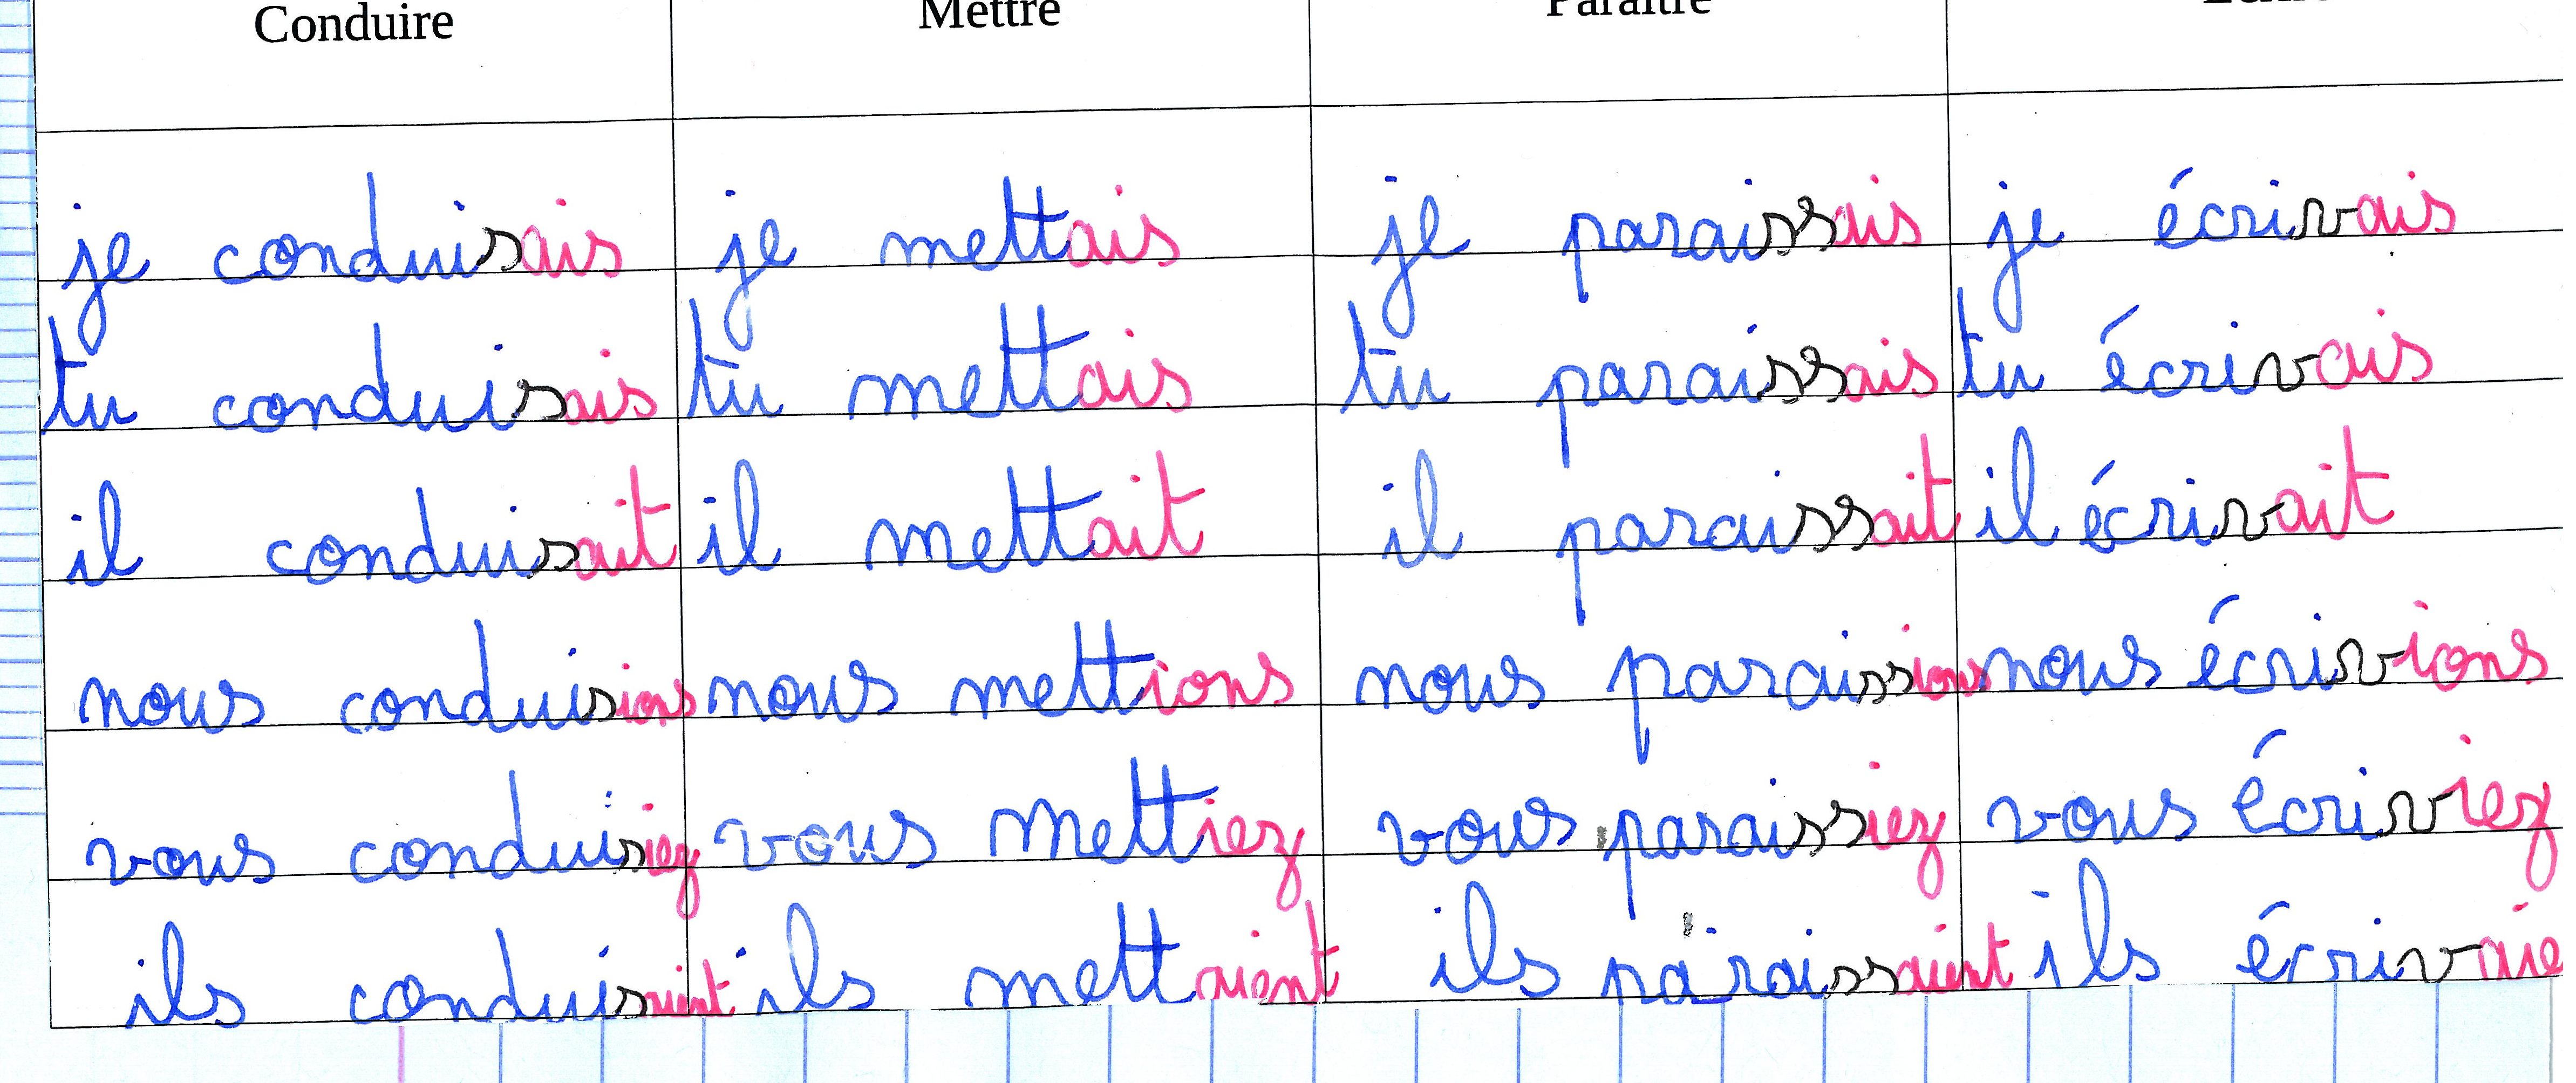 Conduire Mettre Paraître
je conduisais je mettais je paraissais je écrivais
tu conduisais tu mettais tu paraissais tu écrivais
il conduisait il mettait il paraissait il écrivait
nous conduisions nous mettions nous paraissions nous écrivions
vous conduisiez vous mettiez vous paraissiez vous écriviez
ils conduisaient ils mettaient ils paraissaient ils écrivaie